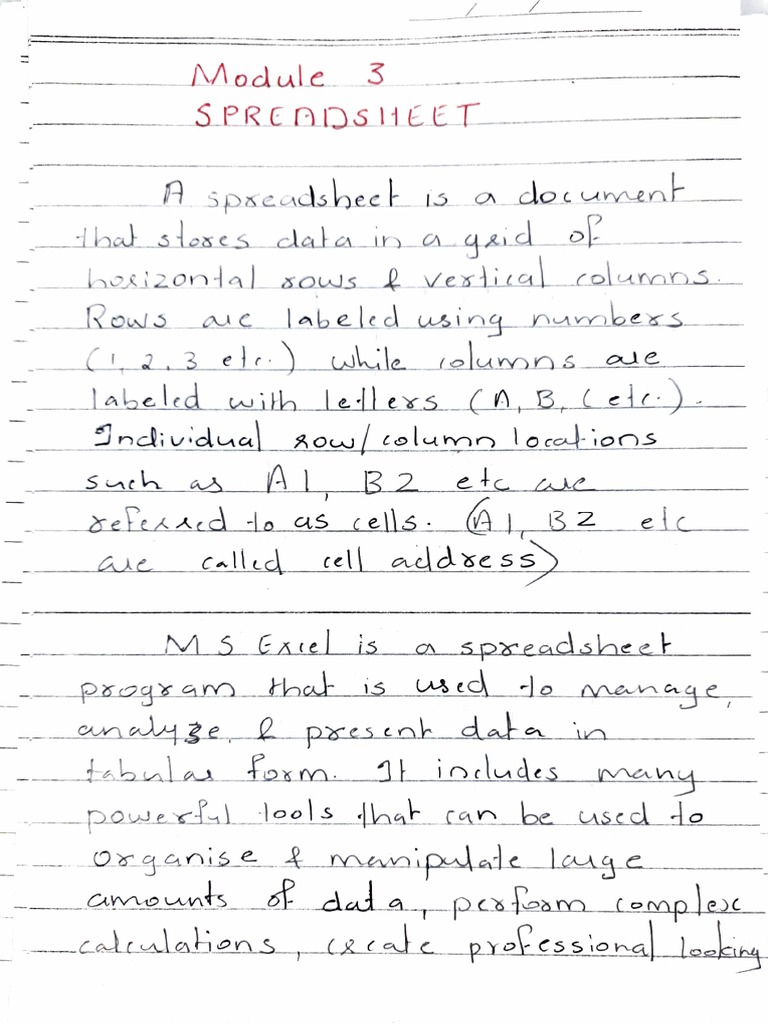 Module 3
SPREADSHEET
A spreadsheet is a document
that stores data in a grid of
horizontal rows & vertical columns.
Rows are labeled using numbers
(1, 2, 3 etc.) while columns are
labeled with letters (A, B, C etc.).
Individual row/column locations
such as A1, B2 etc are
referred to as cells. (A1, B2 etc
are called cell address)
MS Excel is a spreadsheet
program that is used to manage,
analyze, & present data in
tabular form. It includes many
powerful tools that can be used to
organise & manipulate large
amounts of data, perform complex
calculations, create professional looking